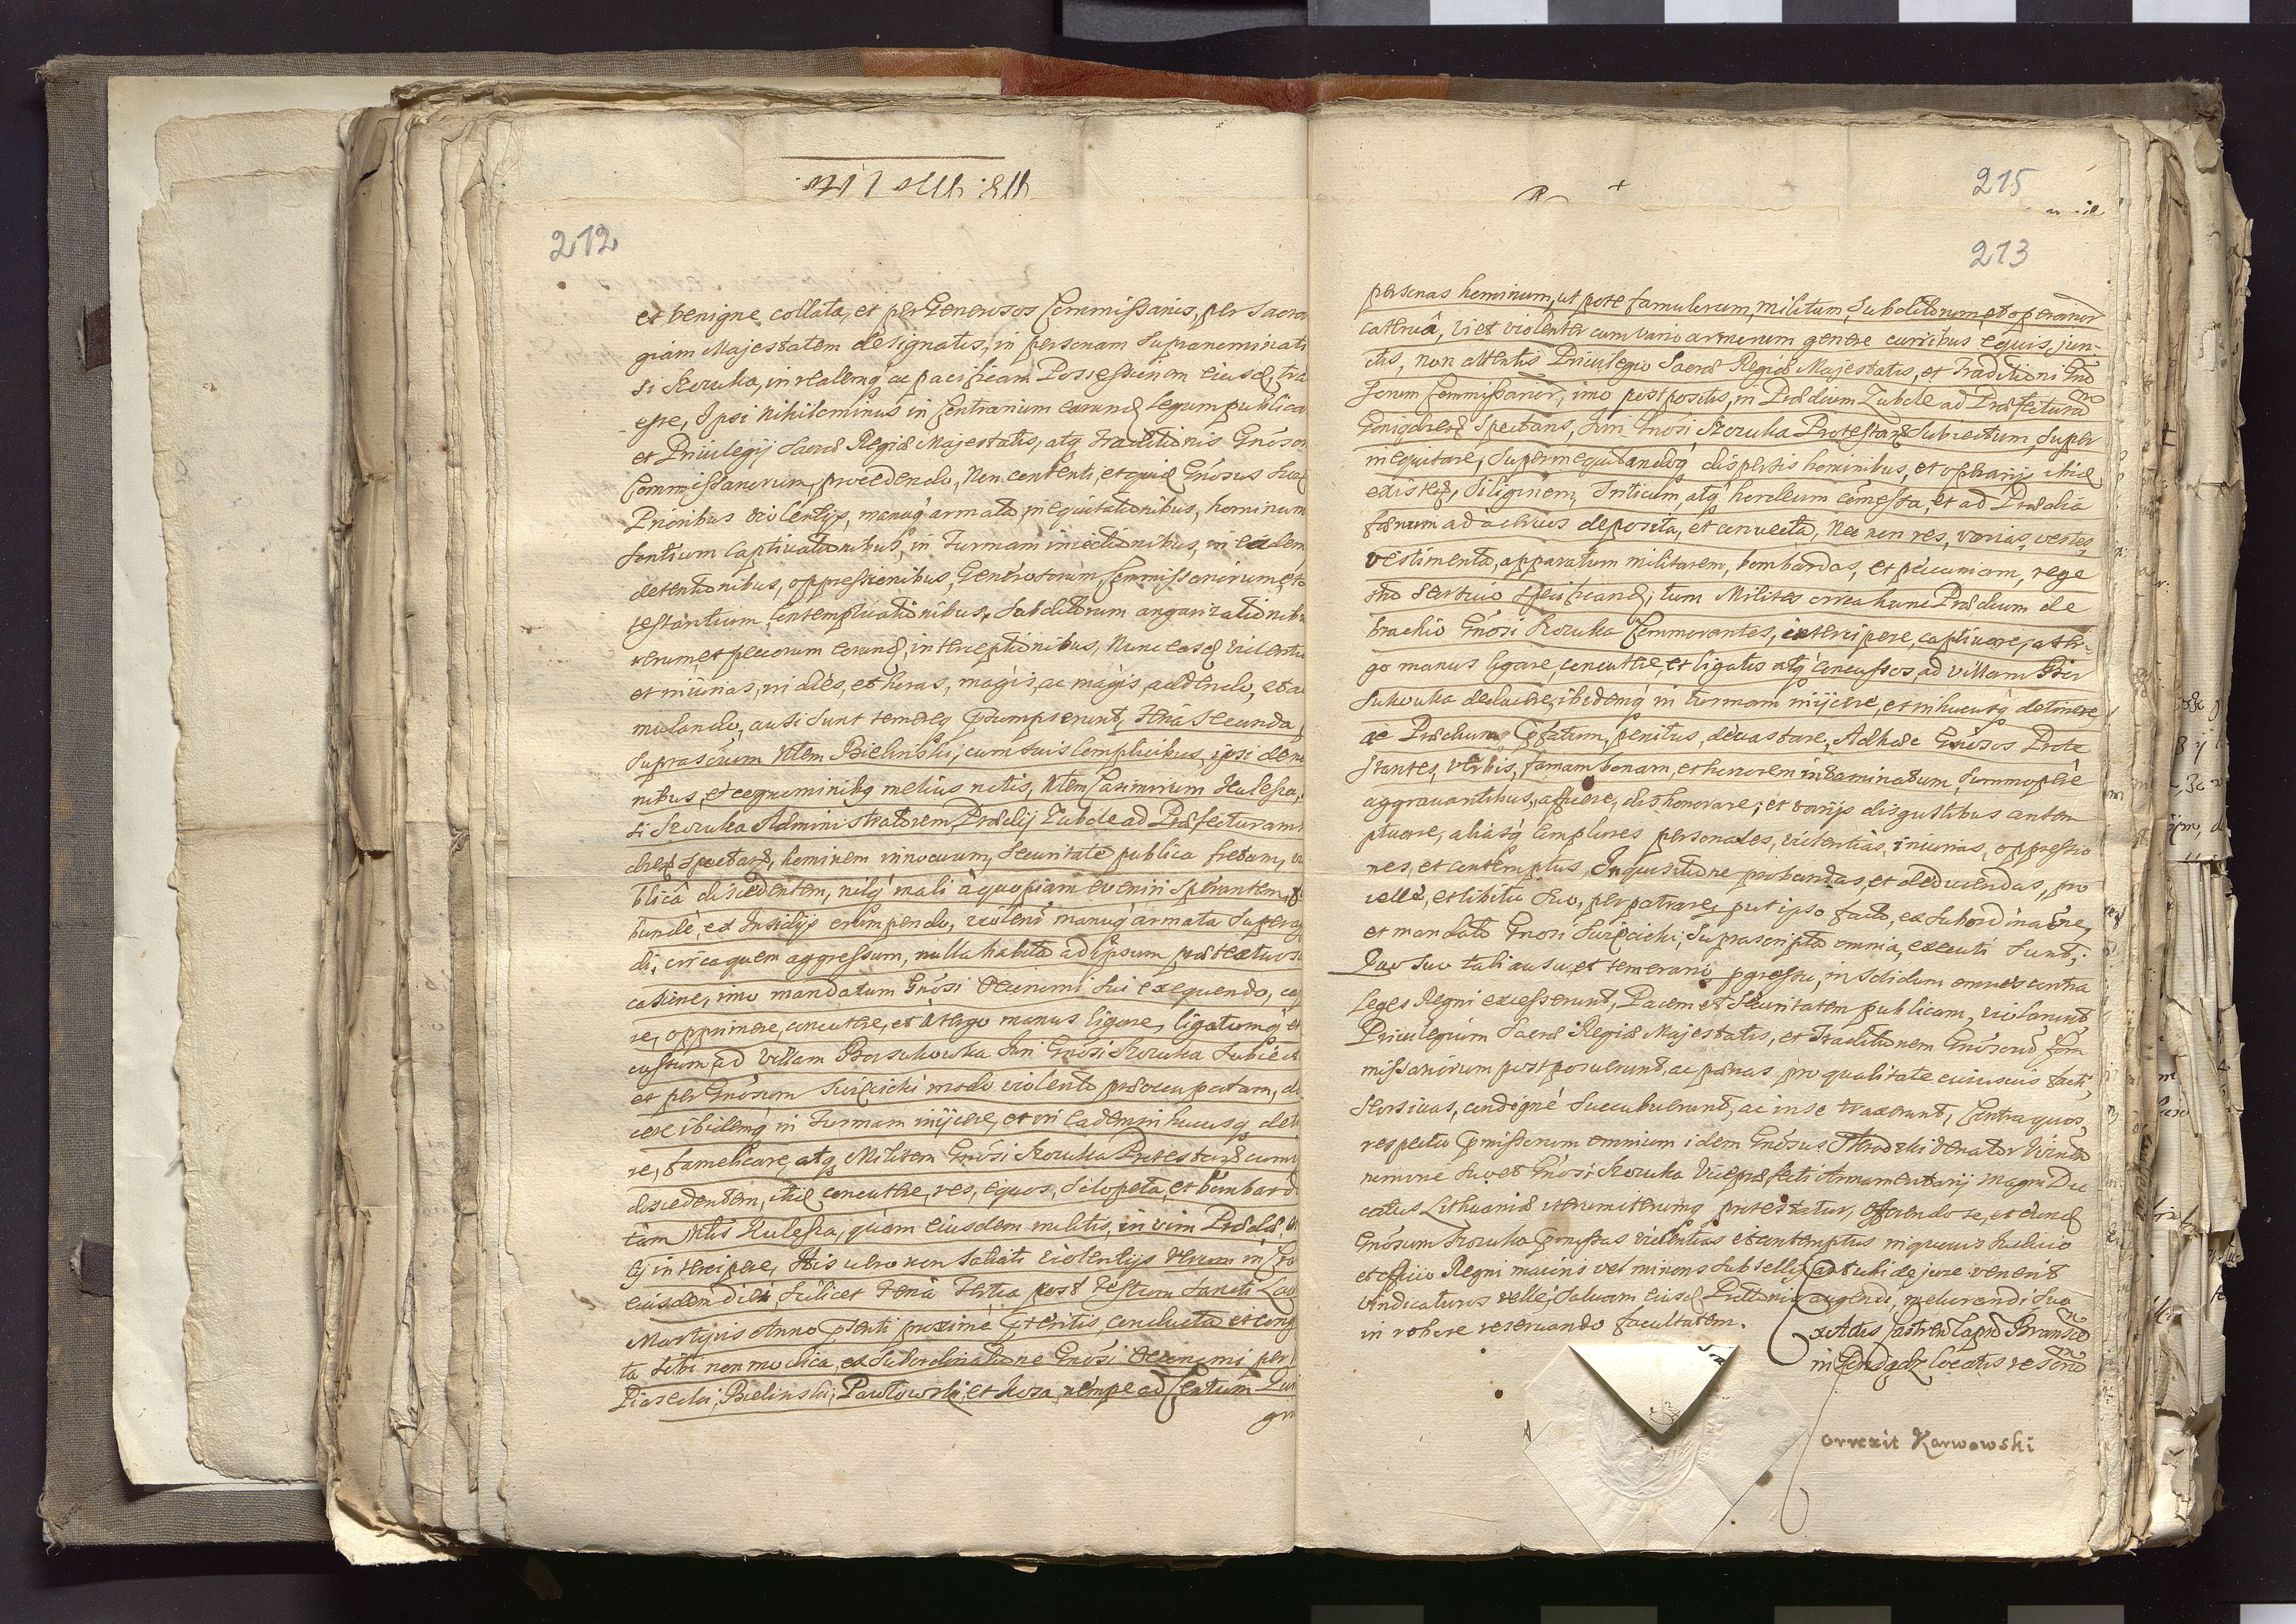 212
et benigne collata, et per Generosos Commissarios, per Sacra
giam Majestatem designatos, in personam Supranominati
si Kozuka, in realemq ac pacificam Possessionem eiusd tra
esse, Ipsi nihilominus in Contrarium earund Legum publica
et Priuilegij Sacræ Regiæ Majestatis, atq Traditionis Gnoso
Commissariorum, procedendo, Non contenti, et quid Gnosus
Prioribus violentijs, manuq armata inequitationibus, hominum
sontium Captiuationibus, in Turmam iniectionibus, in eadem
detentionibus, oppressionibus, Generosorum Commissariorum, et
testantium, Contemptuationibus, Subditorum angarizationib
rerum, et pecorum eorund, interceptionibus, Nunc easd violentia
et iniurias, in dies, et horas, magis, ac magis, addendo, et ac
mulando, ausi sunt temereq præsumpserunt, Feria Secunda
Suprascrium Nlem Bielinski, cum suis Complicibus, ipsi de no
nibus, et cognominibq melius notis, Nlem Casimirum Kulesza,
si Kozuka Administratorem Prædij Zubole ad Præfecturam
spectan, hominem innocuum, securitate publica fretum,
blica discedentem, nilq mali a quopiam eveniri sperantem,
bunde, ex Insidijs erumpendo, violent manuq armata
di, circaquem aggressum, nulla habita ad ipsum prætextuosi
casione, imo mandatum Gnosi Oeconomi sui exequendo, ca
re, opprimere, concutere, et a tergo manus ligare, ligatumq et
cussum ad Villam Borsukowka Juri Gnosi Kozuka Subiect
et per Gnosum modo violento præoccupatam, de
cere ibidemq in Turmam inijcere, et in eadem in hucusq det
re, famelicare, atq Militem Gnosi Kozuka Protestan cum
discedentem, ibid concutere, res, equos, Sclopeta, et bombard
tam Nlis Kulesza, quam eiusdem militis, in vim Prædæ
ij intercipere, His vero non satiati violentijs verum in Cra
eiusdem diei, scilicet Feria Tertia post Festum Sancti Lau
Martyris Anno præsenti proxime præteritis, conducta et cong
ta sibi non modica, ex Subordinatione Gnosi Oeconomi per
Piasecki, Bielinski, Pawlowski, et Koza, nempe ad Centum Qui
gin
215
213
personas hominum, ut pote famulorum, militum, Subditorum, et operarior
caterua, vi et violenter cum vario armorum genere curribus equis, jun-
ctis, non attentis Priuilegio Sacræ Regiæ Majestatis, et Traditioni Gno
sorum Commissarior, imo postpositis, in Prædium Zubole ad Præfectura
spectans, Juri Gnosi Kozuka Protestan Subiectum, super
inequitare, Superinequitandoq dispersis hominibus, et operarijs ibid
existen, siliginem, Triticum, atq hordeum comessa, et ad Prædia
fænum ad aceruos deposita, et conuecta, Nec non res, varias, vestes,
vestimenta, apparatum militarem, bombardas, et pecuniam, rege
stro sertivo specificand, tum Milites circa hunc Prædium de
brachio Gnosi Kozuka Commorantes, intercipere, captiuare, a ter-
go manus ligare, concutere, et ligatos atq concussos, ad villam Bor
sukowka deducere, ibidemq in turmam inijcere, et in hucusq detinere
ac Prædium præfatum, penitus, devastare, Adhæc Gnosos Prote
stantes, verbis, famam bonam, et honorem intaminatum, summopere
aggrauantibus, afficere, dishonorare, et varijs disgustibus contem
ptuare, aliasq complures personales, violentias, iniurias, oppressio
nes, et contemptus, Inquisitione probandas, et deducendas, pro
velle, et libitu suo, perpatrare, put ipso facto, ex subordinatione,
et mandato Gnosi suprascripta omnia, executi sunt,
Quo suo tali ausu, et temerario progressu, in solidum omnes contra
Leges Regni excesserunt, Pacem et Securitatem publicam, violarunt
Priuilegium Sacræ Regiæ Majestatis, et Traditionem Gnosoru Com
missariorum postposuerunt, ac pænas pro qualitate cuiusuis facti,
sersivas, condigne succubuerunt, ac in se traxerunt, Contra quos,
respectu præmissorum omnium idem Gnosus Venator
nomine suo et Gnosi Kozuka Vicepræfecti Armamentarij Magni Du
catus Lithuaniæ iterum iterumq protestatur, offerendo se, et eund
Gnosum Kozuka præmissas violentias et contemptus in quouis Iudicio
et officio Regni maioris vel minoris subsellij ad et ubi de jure venerit
vindicaturos velle, saluam eiusd Prottonis augendi, meliorandi sua
in robore reseruando facultatem.
Ex Actis Castren Capneo Branscen
in locatis
Correxit Karwowski